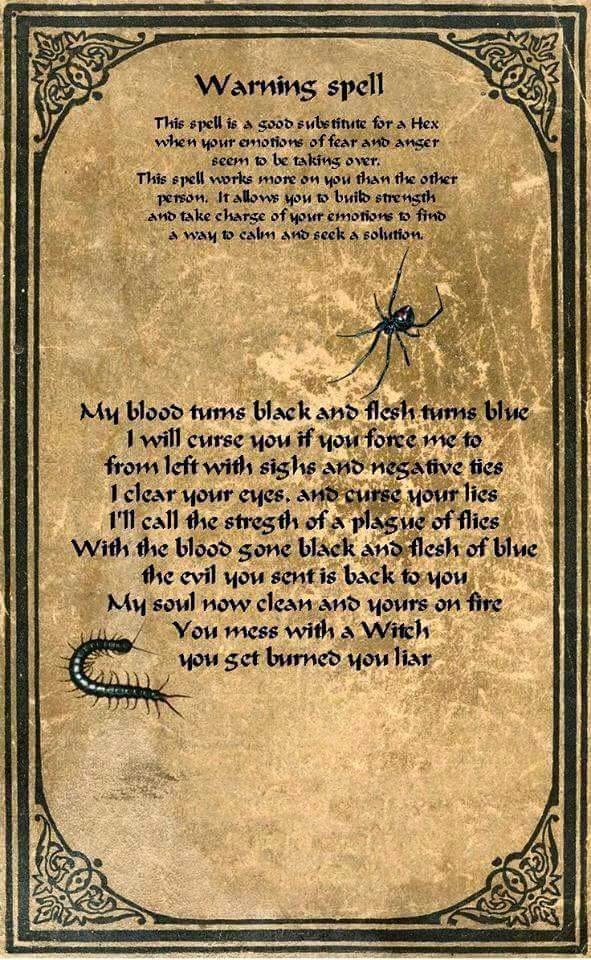 Warning spell
This spell is a good substitute for a Hex
when your emotions of fear and anger
seem to be taking over.
This spell works more on you than the other
person. It allows you to build strength
and take charge of your emotions to find
a way to calm and seek a solution.
My blood turns black and flesh turns blue
I will curse you if you force me to
from left with sighs and negative ties
I clear your eyes. and curse your lies
I'll call the stregth of a plague of flies
With the blood gone black and flesh of blue
the evil you sent is back to you
My soul now clean and yours on fire
You mess with a Witch
you get burned you liar